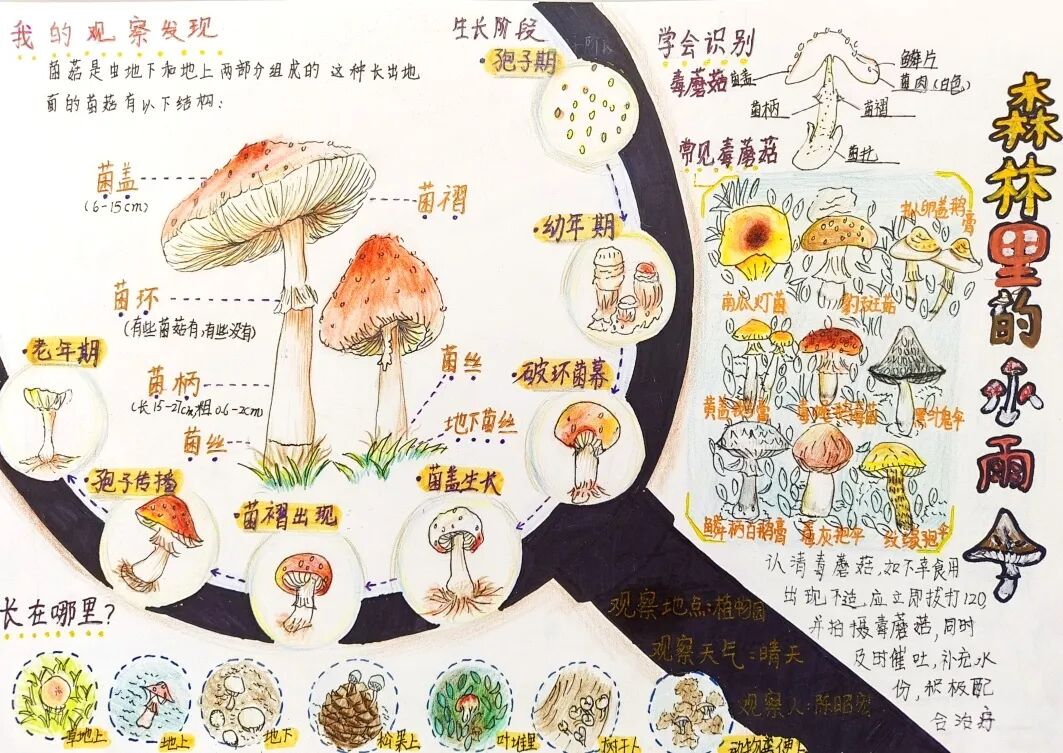 我的观察发现
菌菇是由地下和地上两部分组成的 这种长出地
面的菌菇有以下结构:
菌盖
(6-15cm)
菌褶
菌环
(有些菌菇有,有些没有)
菌柄
菌丝
菌丝
地下菌丝
生长阶段
孢子期
幼年期
破环菌幕
菌盖生长
菌褶出现
孢子传播
老年期
学会识别
毒蘑菇
菌盖
鳞片
菌肉(白色)
菌柄
菌褶
菌托
常见毒蘑菇
南瓜灯菌
豹斑菇
卵盖鹅
膏
黄盖鹅膏
黑
伞
鳞柄白鹅膏
毒灰
伞
纹缘
伞
森林里的
雨
伞
认清毒蘑菇,如不幸食用
出现不适,应立即拔打120,
并拍摄毒蘑菇,同时
及时催吐,补充水
份,积极配
合治疗
观察地点:植物园
观察天气:晴天
观察人:陈昭
长在哪里?
草地上
地上
地下
松果上
叶堆里
树干上
动物粪便上